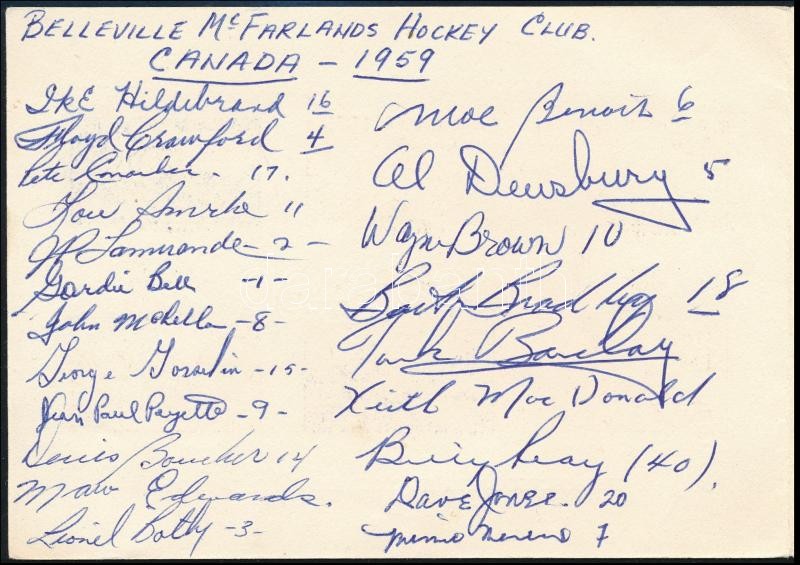 BELLEVILLE McFARLANDS HOCKEY CLUB.
CANADA - 1959
Ike Hildebrand 16
Floyd Crawford 4
Pete Conacher - 17.
Lou Smrke 11
JP Lamirande - 2 -
Gordie Bell -1-
John McLellan -8-
George Gosselin -15-
Jean Paul Payette -9-
Denis Boucher 14
Marv Edwards.
Lionel Botly -3-
Moe Benoit 6
Al Dewsbury 5
Wayne Brown 10
Barton Bradley 18
Turk Barclay
Keith MacDonald
Billy Reay (40).
Dave Jones. 20
Minnie Menard 7